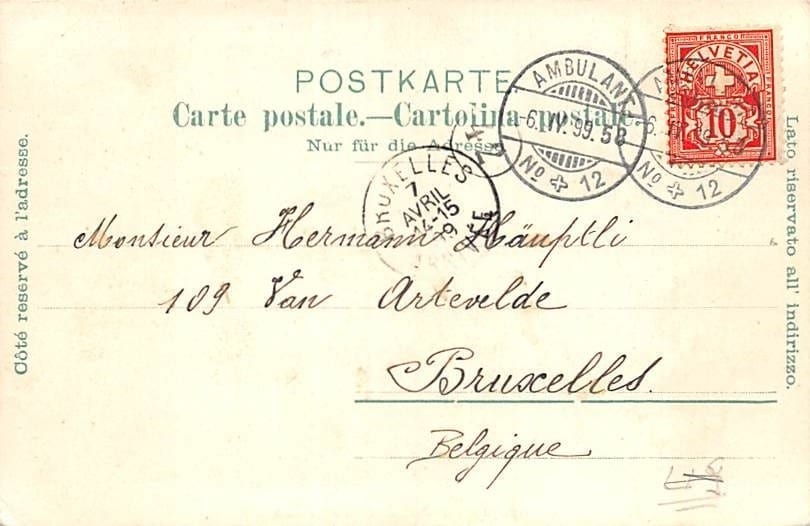 POSTKARTE
Carte postale.—Cartolina postale.
Nur für die Adresse
Côté reservé à l'adresse.
Lato riservato all' indirizzo.
FRANCO
HELVETIA
FRANCO
FRANCO
10
AMBULANT
-6.IV.99.5B
No 12
No 12
BRUXELLES
7
AVRIL
14-15
Monsieur Hermann Häuptli
109 Van Artevelde
Bruxelles.
Belgique